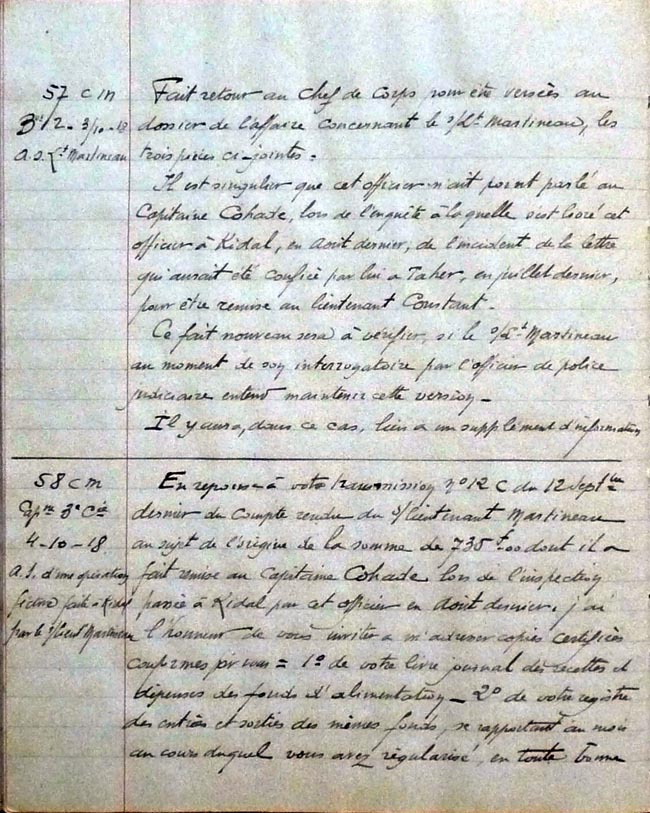 57 c m
3 2 - 3/10-18
a.s. Lt Martineau
Fait retour au Chef de Corps pour être versées au
dossier de l'affaire concernant le s/Lt Martineau, les
trois pièces ci-jointes.
Il est singulier que cet officier n'ait point parlé au
Capitaine Cohade, lors de l'enquête à laquelle s'est livré cet
officier à Kidal, en Août dernier, de l'incident de la lettre
qui aurait été confiée par lui à Taher, en juillet dernier,
pour être remise au lieutenant Constant.
Ce fait nouveau sera à vérifier, si le s/Lt Martineau
au moment de son interrogatoire par l'officier de police
judiciaire entend maintenir cette version -
Il y aura, dans ce cas, lieu à un supplément d'information
58 c m
3e Cie
4-10-18
a.s. d'une opération
fictive faite à Kidal
par le s/lieut Martineau
En réponse à votre transmission no 12 C du 12 Septbre
dernier du compte rendu du s/lieutenant Martineau
au sujet de l'origine de la somme de 735f.00 dont il a
fait remise au Capitaine Cohade lors de l'inspection
passée à Kidal par cet officier en Août dernier, j'ai
l'honneur de vous inviter à m'adresser copies certifiées
conformes = 1o de votre livre journal des recettes et
dépenses des fonds d'alimentation - 2o de votre registre
des entrées et sorties des mêmes fonds, se rapportant au mois
au cours duquel vous avez régularisé, en toute bonne